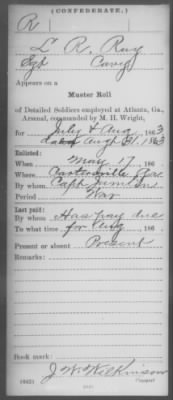 (CONFEDERATE.)
R
L. R. Ray
Sgt
Appears on a
Muster Roll
of Detailed Soldiers employed at Atlanta, Ga.,
Arsenal, commanded by M. H. Wright,
for July & Aug, 1863
dated Aug 31, 1863
Enlisted:
When May 17, 186
Where
By whom Capt
Period War
Last paid:
By whom Has pay due
To what time for
Present or absent Present
Remarks:
Book mark:
J. W. Wilkinson
Copyist.